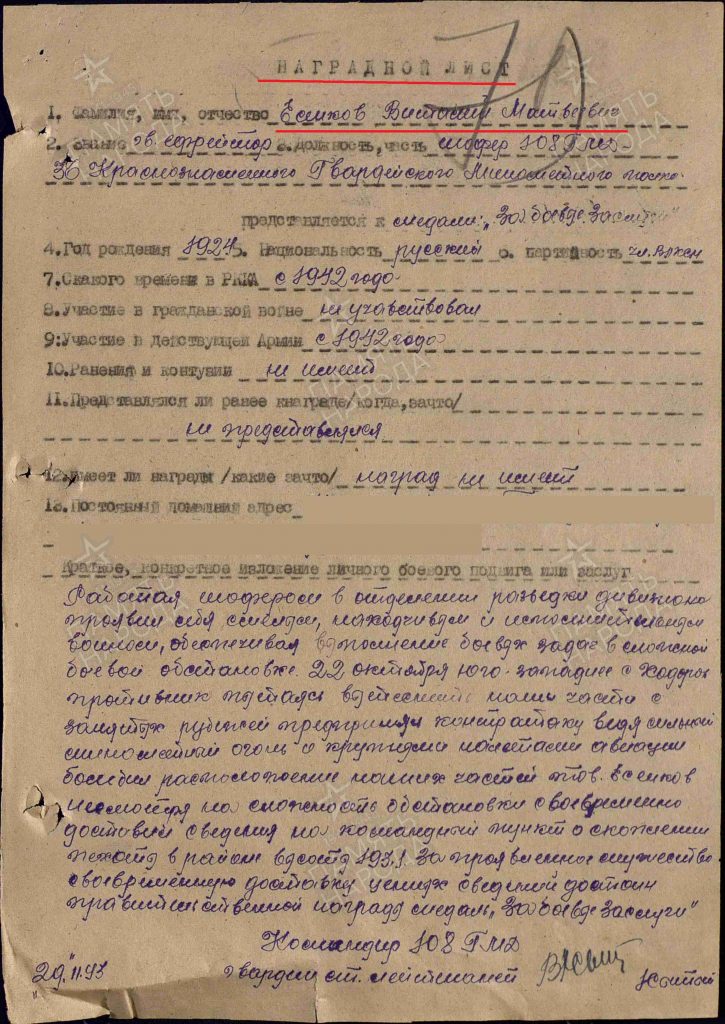 НАГРАДНОЙ ЛИСТ
1. Фамилия, имя, отчество Есиков Виталий Матвеевич
2. Звание гв. ефрейтор 3. Должность, часть шофер 108 ГМД
36 Краснознаменного Гвардейского Минометного полка
представляется к медали: „За боевые заслуги"
4. Год рождения 1924 5. Национальность русский 6. партийность чл. ВЛКСМ
7. Скакого времени в РККА с 1942 года
8. Участие в гражданской войне не учавствовал
9: Участие в действующей Армии с 1942 года
10. Ранения и контузии не имеет
11. Представлялся ли ранее кнаграде /когда, зачто/
не представлялся
12. имеет ли награды /какие зачто/ наград не имеет
13. Постоянный домашний адрес
Краткое, конкретное изложение личного боевого подвига или заслуг
Работая шофером в отделении разведки дивизиона
проявил себя смелым, находчивым и исполнительным
воином, обеспечивая выполнение боевых задач в сложной
боевой обстановке. 22 октября юго-западнее с Ходоров
противник пытаясь вытеснить наши части с
занятых рубежей предпринял контратаку ведя сильный
минометный огонь и крупными налетами авиации
бомбил расположение наших частей тов. Есенков
несмотря на сложность обстановки своевременно
доставил сведения на командный пункт о скоплении
пехоты в районе высоты 197,1. За проявленное мужество
своевременную доставку ценных сведений достоин
правительственной награды медаль „За боевые заслуги"
Командир 108 ГМД
29.11.43 гвардии ст. лейтенант